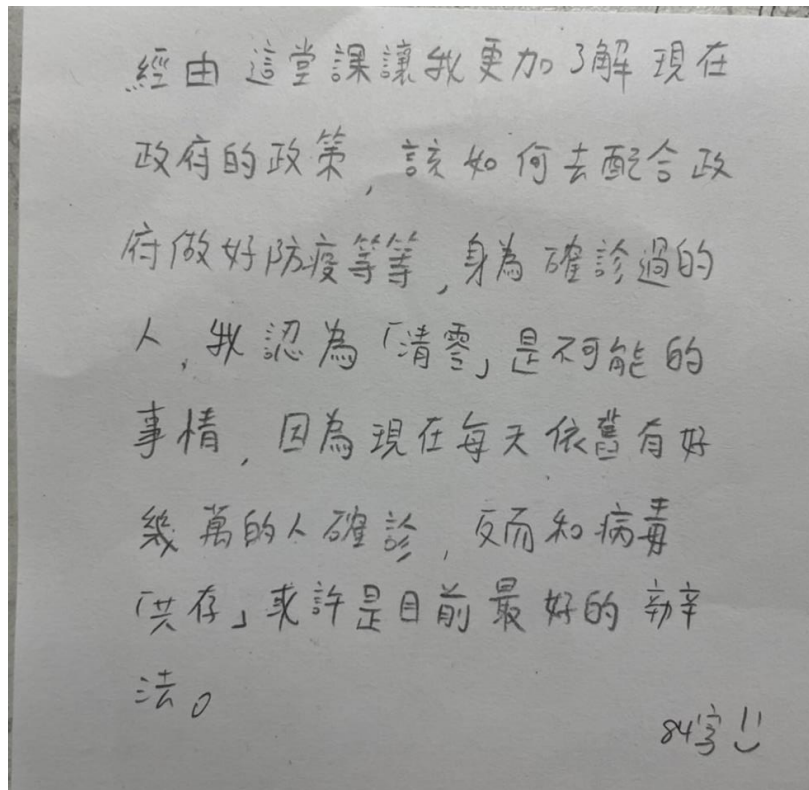 經由這堂課讓我更加了解現在
政府的政策,該如何去配合政
府做好防疫等等,身為確診過的
人,我認為「清零」是不可能的
事情,因為現在每天依舊有好
幾萬的人確診,反而和病毒
「共存」或許是目前最好的辦
法。
84字!!